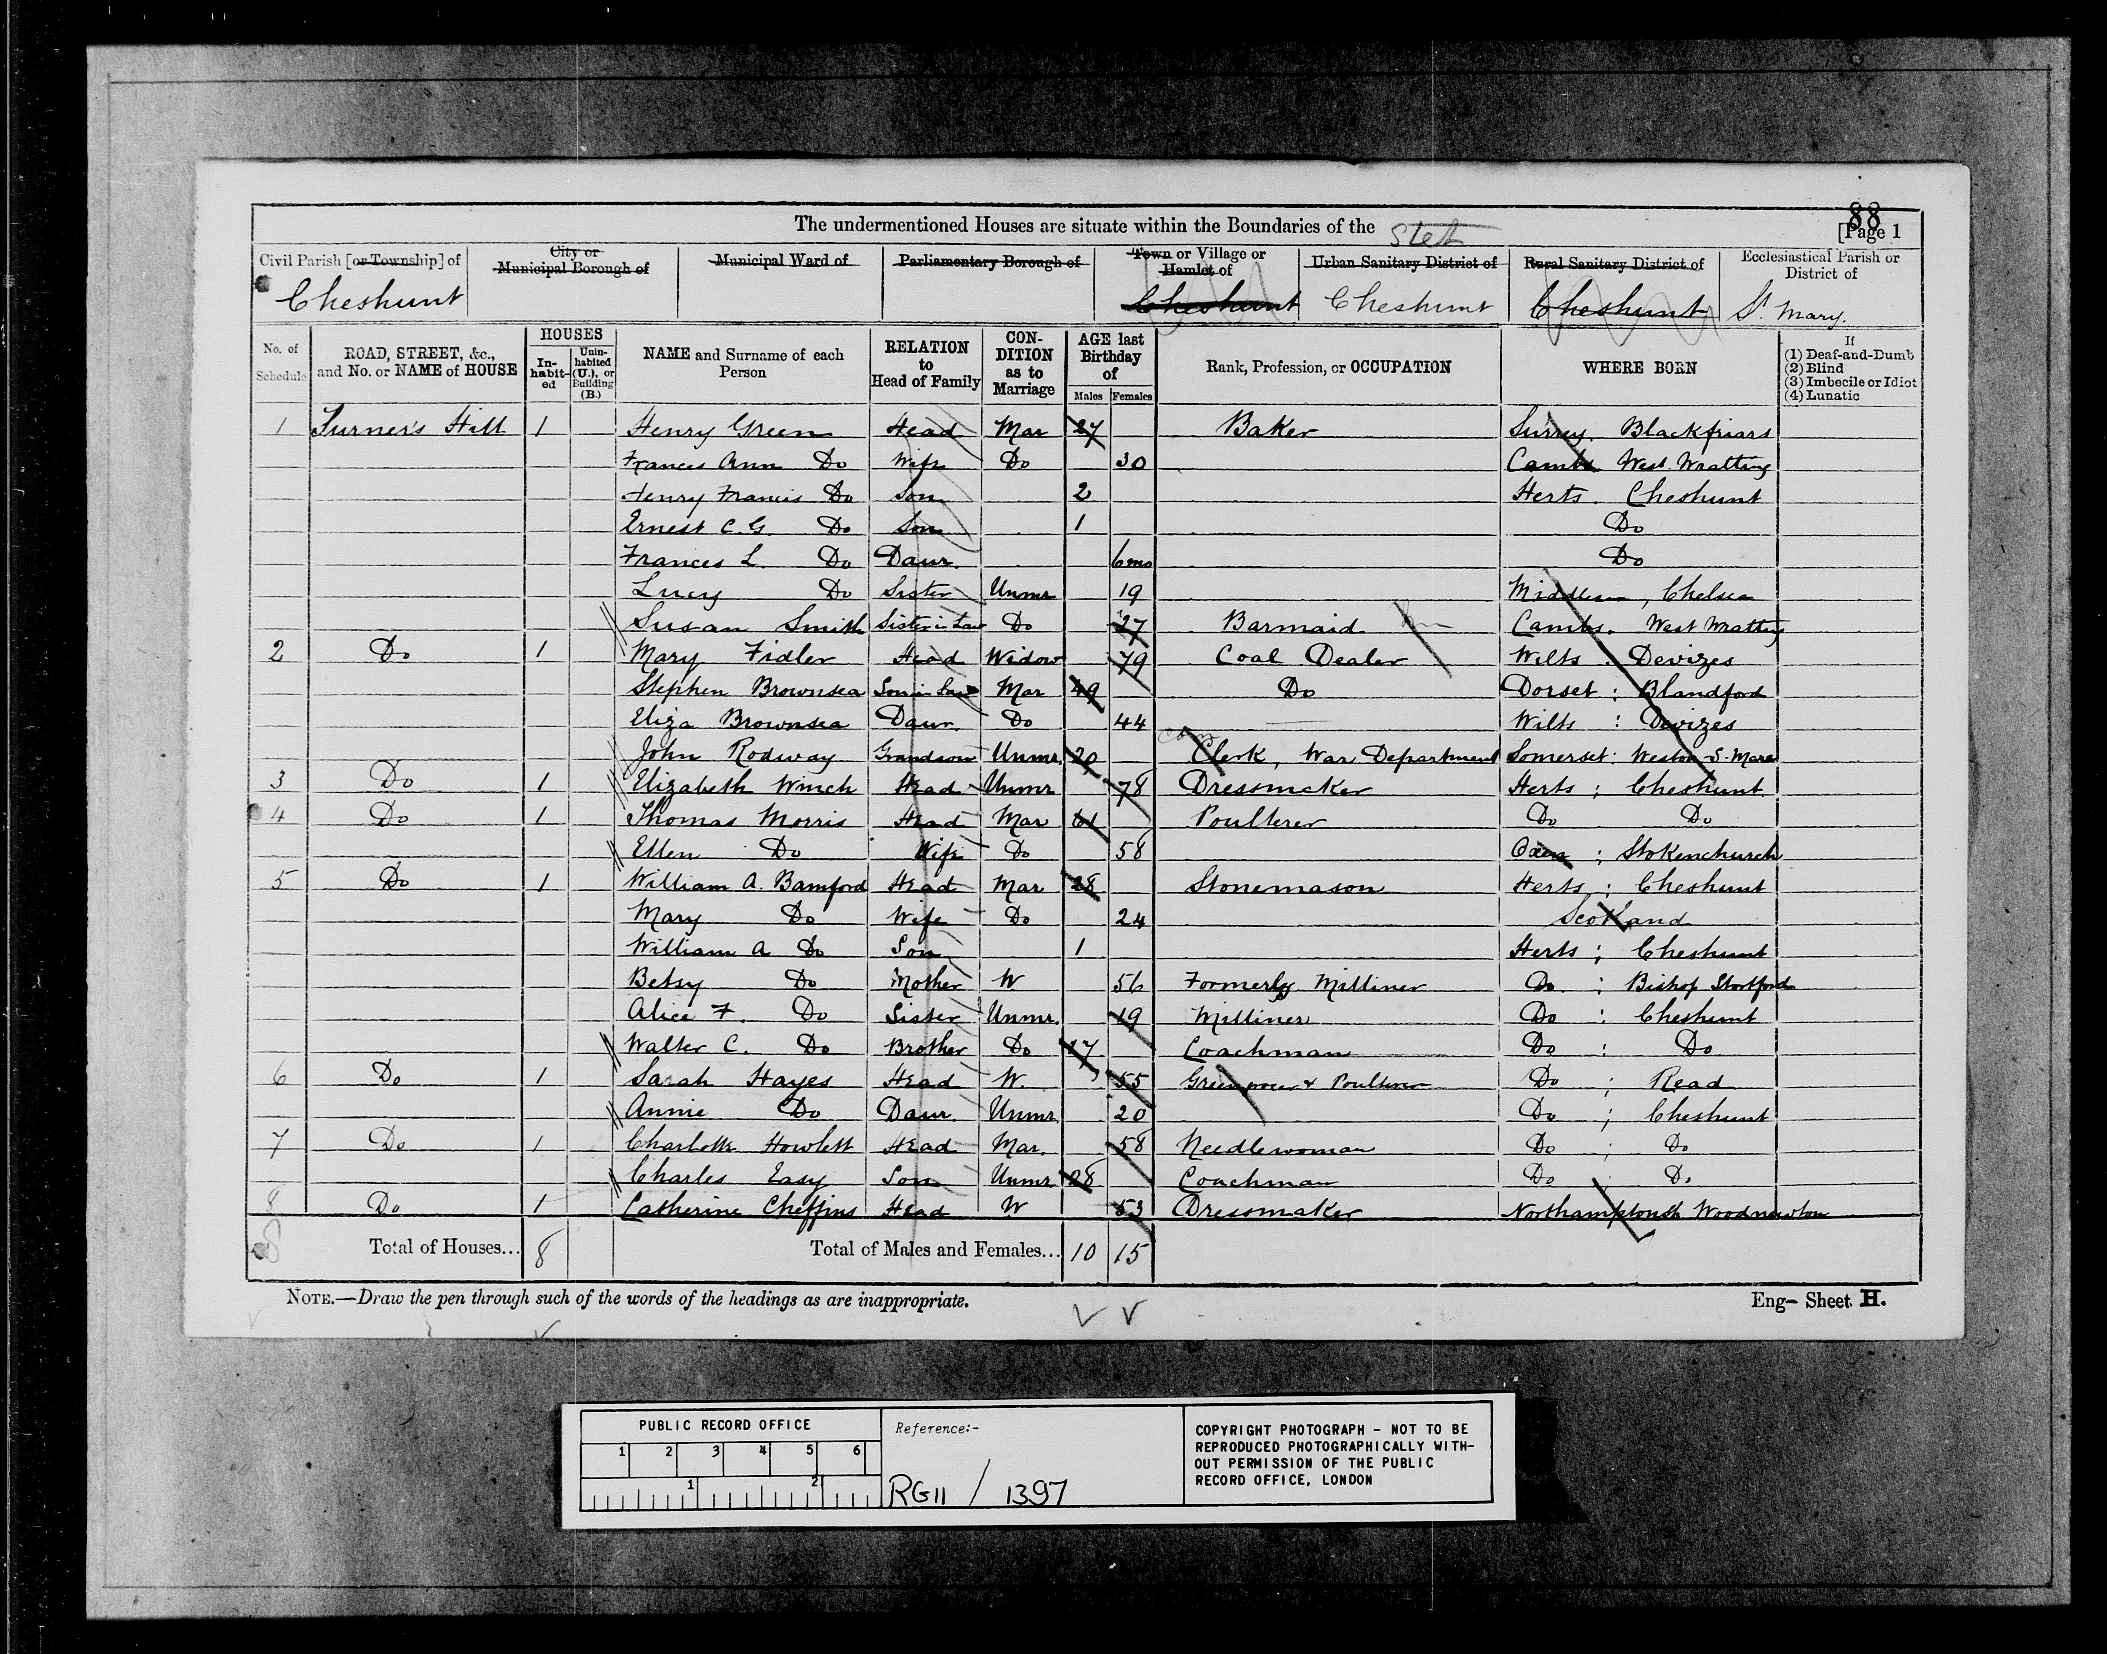 The undermentioned Houses are situate within the Boundaries of the Stet 88 [Page 1
Civil Parish [or Township] of Cheshunt
City or Municipal Borough of
Municipal Ward of
Parliamentary Borough of
Town or Village or Hamlet of Cheshunt
Urban Sanitary District of Cheshunt
Rural Sanitary District of Cheshunt
Ecclesiastical Parish or District of St. Mary.
No. of Schedule
ROAD, STREET, &c., and No. or NAME of HOUSE
HOUSES In-habit-ed Unin-habited (U.), or Building (B.)
NAME and Surname of each Person
RELATION to Head of Family
CON-DITION as to Marriage
AGE last Birthday of Males Females
Rank, Profession, or OCCUPATION
WHERE BORN
If (1) Deaf-and-Dumb (2) Blind (3) Imbecile or Idiot (4) Lunatic
1 Turner's Hill 1 Henry Green Head Mar 27 Baker Surrey. Blackfriars
Frances Ann Do Wife Do 30 Cambs West Wratting
Henry Francis Do Son 2 Herts. Cheshunt
Ernest C. G. Do Son 1 Do
Frances L. Do Daur. 6mo Do
Lucy Do Sister Unmr 19 Middlesex, Chelsea
Susan Smith Sister in Law Do 27 Barmaid Cambs. West Wratting
2 Do 1 Mary Fidler Head Widow 79 Coal Dealer Wilts. Devizes
Stephen Brownsea Son in Law Mar 49 Do Dorset: Blandford
Eliza Brownsea Daur. Do 44 Wilts: Devizes
John Rodway Grandson Unmr. 20 Clerk, War Department Somerset: Weston S. Mare
3 Do 1 Elizabeth Winch Head Unmr 78 Dressmaker Herts; Cheshunt
4 Do 1 Thomas Morris Head Mar 61 Poulterer Do Do
Ellen Do Wife Do 58 Oxon; Stokenchurch
5 Do 1 William A. Bamford Head Mar 28 Stonemason Herts; Cheshunt
Mary Do Wife Do 24 Scotland
William A Do Son 1 Herts; Cheshunt
Betsy Do Mother W 56 Formerly Milliner Do: Bishop Stortford
Alice F. Do Sister Unmr. 19 Milliner Do: Cheshunt
Walter C. Do Brother Do 27 Coachman Do: Do
6 Do 1 Sarah Hayes Head W. 55 Greengrocer & Poulterer Do; Read
Annie Do Daur. Unmr. 20 Do; Cheshunt
7 Do 1 Charlotte Howlett Head Mar. 58 Needlewoman Do Do
Charles Easy Son Unmr 28 Coachman Do Do
8 Do 1 Catherine Cheffins Head W 53 Dressmaker Northamptonsh Woodnewton
8 Total of Houses... 8 Total of Males and Females... 10 15
NOTE.—Draw the pen through such of the words of the headings as are inappropriate.
Eng- Sheet H.
PUBLIC RECORD OFFICE
1 2 3 4 5 6
1 2
Reference:-
RG11 / 1397
COPYRIGHT PHOTOGRAPH - NOT TO BE
REPRODUCED PHOTOGRAPHICALLY WITH-
OUT PERMISSION OF THE PUBLIC
RECORD OFFICE, LONDON